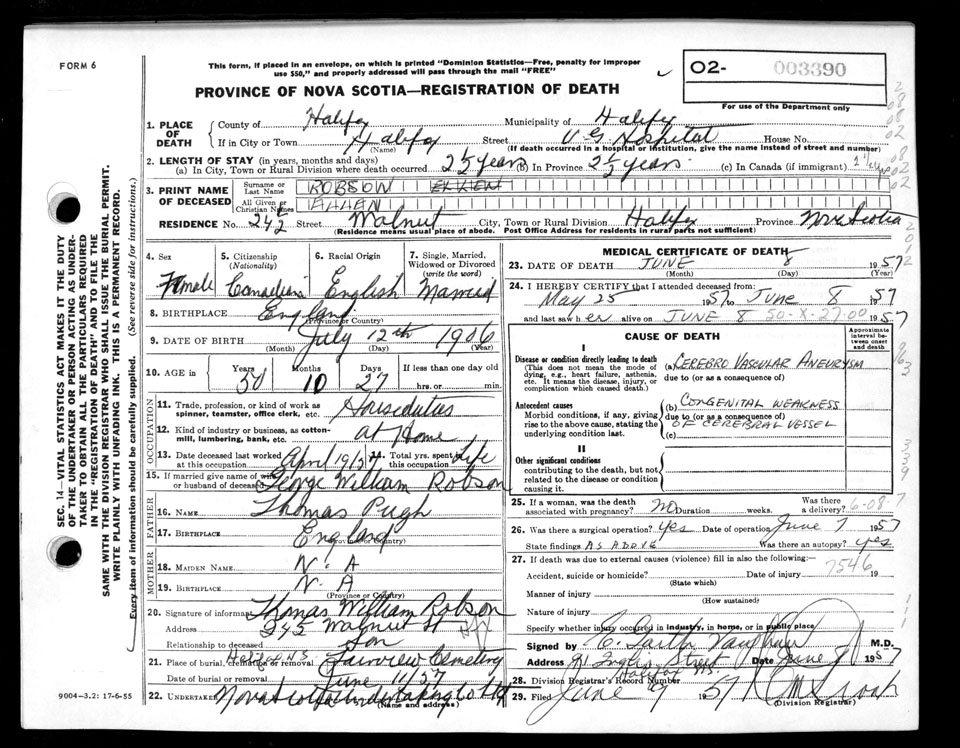 FORM 6
This form, if placed in an envelope, on which is printed "Dominion Statistics—Free, penalty for improper
use $50," and properly addressed will pass through the mail "FREE"
O2- 003390
For use of the Department only
PROVINCE OF NOVA SCOTIA—REGISTRATION OF DEATH
SEC. 14—VITAL STATISTICS ACT MAKES IT THE DUTY
OF THE UNDERTAKER OR PERSON ACTING AS UNDER-
TAKER TO OBTAIN ALL THE PARTICULARS REQUIRED
IN THE "REGISTRATION OF DEATH" AND TO FILE THE
SAME WITH THE DIVISION REGISTRAR WHO SHALL ISSUE THE BURIAL PERMIT.
WRITE PLAINLY WITH UNFADING INK. THIS IS A PERMANENT RECORD.
Every item of information should be carefully supplied. (See reverse side for instructions.)
1. PLACE OF DEATH
County of Halifax Municipality of Halifax
If in City or Town Halifax Street V G Hospital House No.
(Name) (If death occurred in a hospital or institution, give the name instead of street and number)
2. LENGTH OF STAY (in years, months and days)
(a) In City, Town or Rural Division where death occurred 2½ years (b) In Province 2½ years (c) In Canada (if immigrant)
3. PRINT NAME OF DECEASED
Surname or Last Name ROBSON ELLEN
All Given or Christian Names ELLEN
RESIDENCE No. 242½ Street Walnut City, Town or Rural Division Halifax Province Nova Scotia
(Residence means usual place of abode. Post Office Address for residents in rural parts not sufficient)
4. Sex Female
5. Citizenship (Nationality) Canadian
6. Racial Origin English
7. Single, Married, Widowed or Divorced (write the word) Married
8. BIRTHPLACE England
(Province or Country)
9. DATE OF BIRTH July 12th 1906
(Month) (Day) (Year)
10. AGE in Years 50 Months 10 Days 27 If less than one day old hrs. or min.
OCCUPATION
11. Trade, profession, or kind of work as spinner, teamster, office clerk, etc. Houseduties
12. Kind of industry or business, as cotton-mill, lumbering, bank, etc. at Home
13. Date deceased last worked at this occupation April 1957 14. Total yrs. spent in this occupation Life
15. If married give name of wife or husband of deceased George William Robson
FATHER
16. NAME Thomas Pugh
17. BIRTHPLACE England
(Province or Country)
MOTHER
18. MAIDEN NAME N. A
19. BIRTHPLACE N. A
(Province or Country)
20. Signature of informant Thomas William Robson
Address 245 Walnut St
Relationship to deceased Son
21. Place of burial, cremation or removal Halifax N S Fairview Cemetery
Date of burial or removal June 11/57
22. UNDERTAKER Nova Scotia Undertaking Co Ltd
(Name and address)
9004-3.2: 17-6-55
MEDICAL CERTIFICATE OF DEATH
23. DATE OF DEATH JUNE 8 1957
(Month) (Day) (Year)
24. I HEREBY CERTIFY that I attended deceased from:
May 25 1957 to June 8 1957
and last saw her alive on JUNE 8 50-X-27-00 1957
CAUSE OF DEATH
Approximate interval between onset and death
I
Disease or condition directly leading to death
(This does not mean the mode of dying, e.g., heart failure, asthenia, etc. It means the disease, injury, or complication which caused death.)
(a) CEREBRO VASCULAR ANEURYSM
due to (or as a consequence of)
Antecedent causes
Morbid conditions, if any, giving rise to the above cause, stating the underlying condition last.
(b) CONGENITAL WEAKNESS
due to (or as a consequence of)
OF CEREBRAL VESSEL
(c)
II
Other significant conditions
contributing to the death, but not related to the disease or condition causing it.
25. If a woman, was the death associated with pregnancy? NO Duration weeks. Was there a delivery? 6-08-7
26. Was there a surgical operation? Yes Date of operation June 7 1957
State findings AS ABOVE Was there an autopsy? Yes
27. If death was due to external causes (violence) fill in also the following:—
Accident, suicide or homicide? Date of injury 7546 19
(State which)
Manner of injury
(How sustained)
Nature of injury
Specify whether injury occurred in industry, in home, or in public place
Signed by M.D.
Address 91 Inglis Street Date June 9 1957
Halifax NS.
28. Division Registrar's Record Number
29. Filed June 9 1957
(Division Registrar)